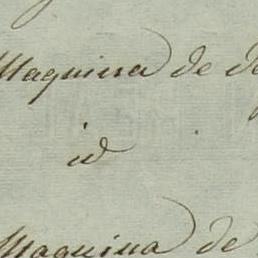 Maquina de de
id
Maquina de